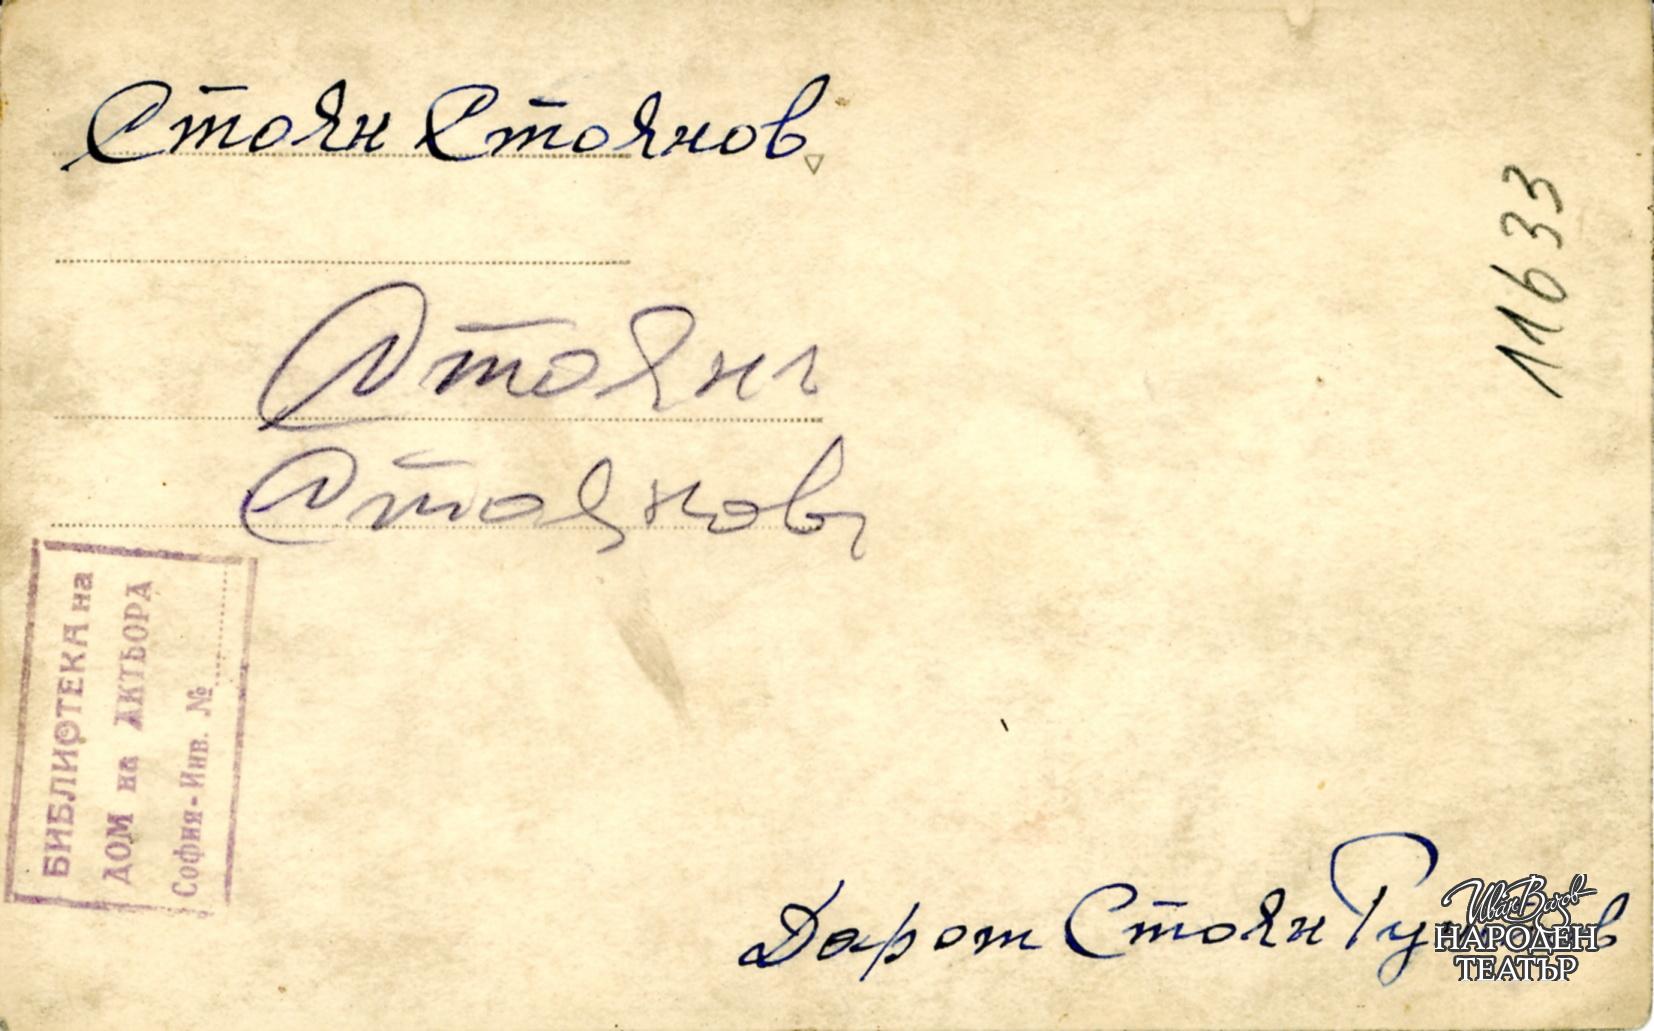 Стоян Стоянов
Стоянъ
Стояновъ
11633
БИБЛИОТЕКА на
ДОМ на АКТЬОРА
София-Инв. №
Дар от Стоян
Иван Вазов
НАРОДЕН
ТЕАТЪР